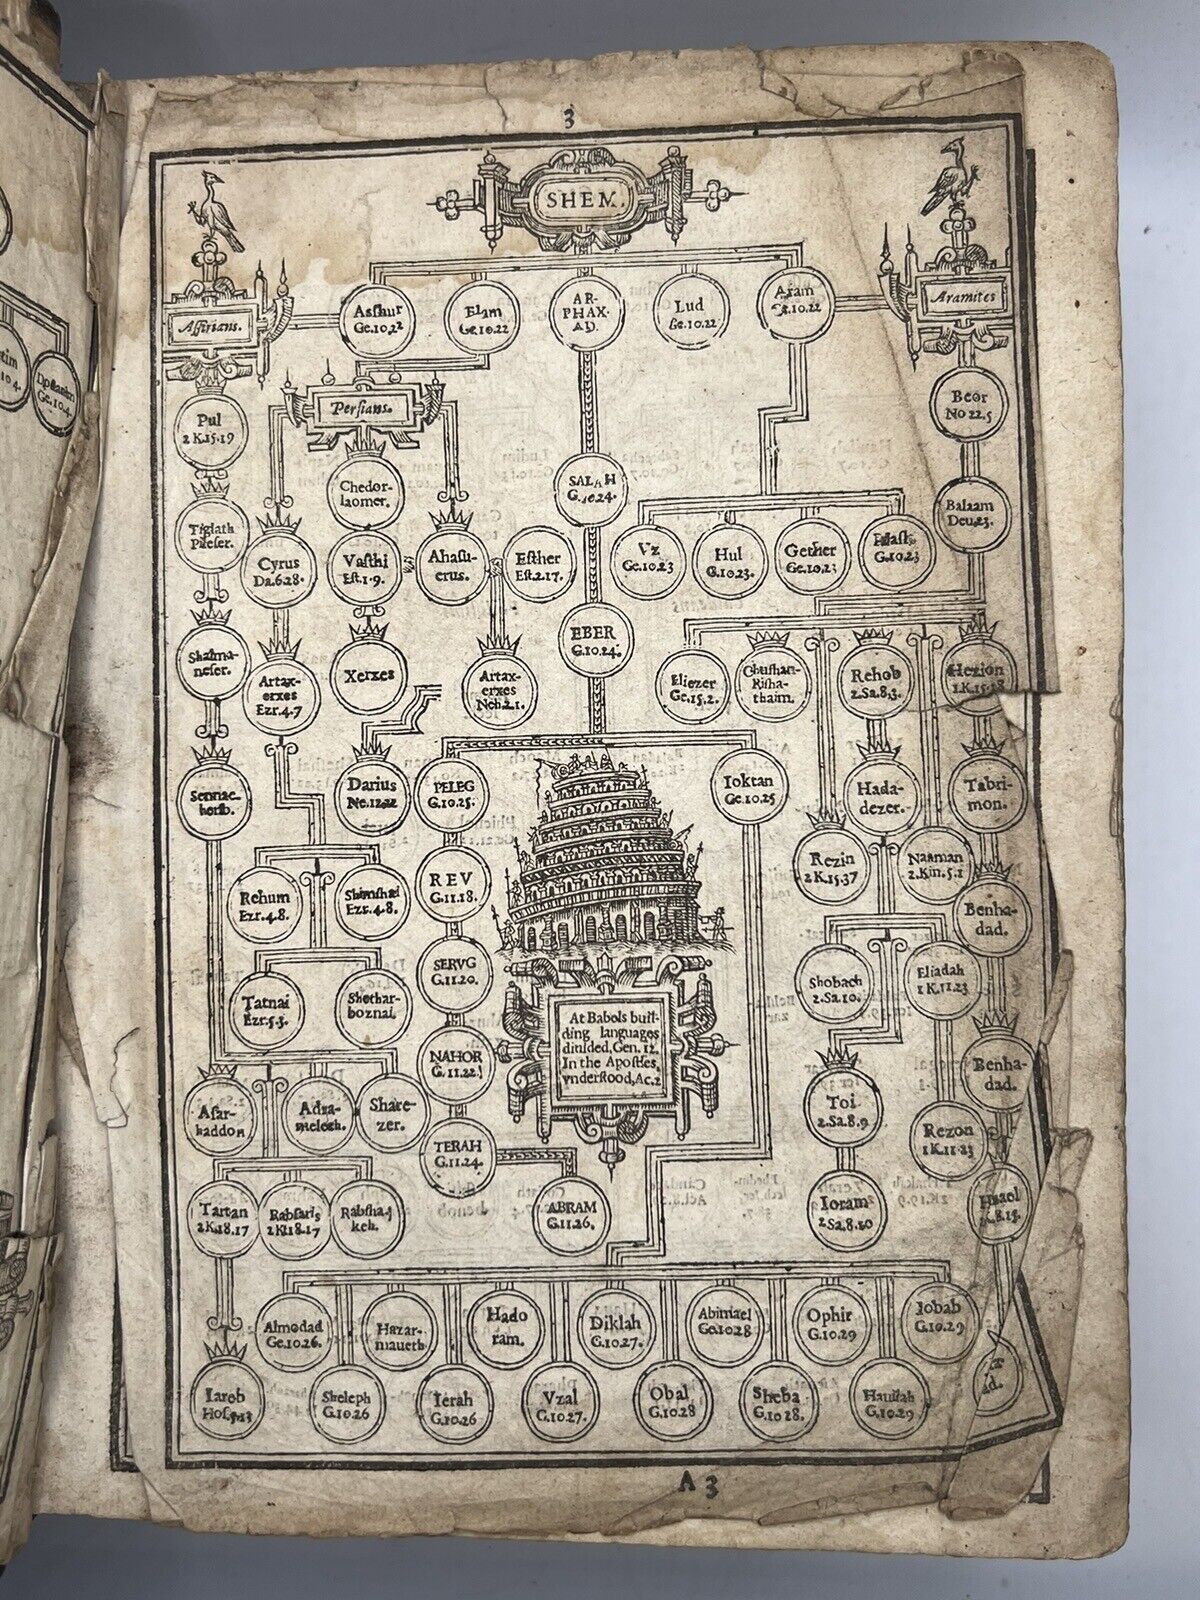 3
SHEM.
Assirians.
Aramites
Asshur
Ge.10.22
Elam
Ge.10.22
AR-
PHAX-
AD.
Lud
Ge.10.22
Aram
Ge.10.22
Persians.
Pul
2 K.15.19
Chedor-
laomer.
SALAH
G.10.24.
Beor
No 22.5
Tiglath
Pileser.
Cyrus
Da.6.28.
Vasthi
Est.1.9.
Ahasu-
erus.
Esther
Est.2.17.
Vz
Ge.10.23
Hul
G.10.23.
Gether
Ge.10.23
G.10.23
Balaam
Deu.23.
Shalma-
neser.
Artax-
erxes
Ezr.4.7
Xerxes
Artax-
erxes
Neh.2.1.
EBER
G.10.24.
Eliezer
Ge.15.2.
Chushan-
Risha-
thaim.
Rehob
2.Sa.8.3.
Hezion
1.K.15.18
Sennac-
herib.
Darius
Ne.12.22
PELEG
G.10.25.
Ioktan
Ge.10.25
Hada-
dezer.
Tabri-
mon.
Rehum
Ezr.4.8.
Shimshai
Ezr.4.8.
REV
G.11.18.
Rezin
2 K.15.37
Naaman
2.Kin.5.1
Benha-
dad.
Tatnai
Ezr.5.3.
Shethar-
boznai.
SERVG
G.11.20.
Shobach
2.Sa.10.
Eliadah
1 K.11.23
At Babels buil-
ding languages
diuided, Gen. 12.
In the Apostles,
vnderstood, Ac.2
NAHOR
G.11.22.
Benha-
dad.
Asar-
haddon
Adra-
melech.
Share-
zer.
Toi
2.Sa.8.9
TERAH
G.11.24.
Rezon
1 K.11.23
Tartan
2 K.18.17
Rabsaris
2 K.18.17
Rabsha-
keh.
ABRAM
G.11.26.
Ioram
2 Sa.8.10
Hazael
Almodad
Ge.10.26.
Hazar-
maueth
Hado
ram.
Diklah
G.10.27.
Abimael
Ge.10.28
Ophir
G.10.29
Iobab
G.10.29
Iareb
Hos.5.13
Sheleph
G.10.26
Ierah
G.10.26
Vzal
G.10.27.
Obal
G.10.28
Sheba
G.10 28.
Hauilah
G.10.29
ad.
A 3
Dodanim
Ge.10.4.